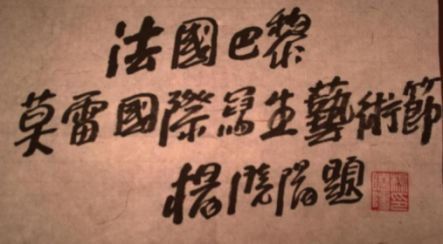 法國巴黎
莫雷國際寫生藝術節
楊曉陽題